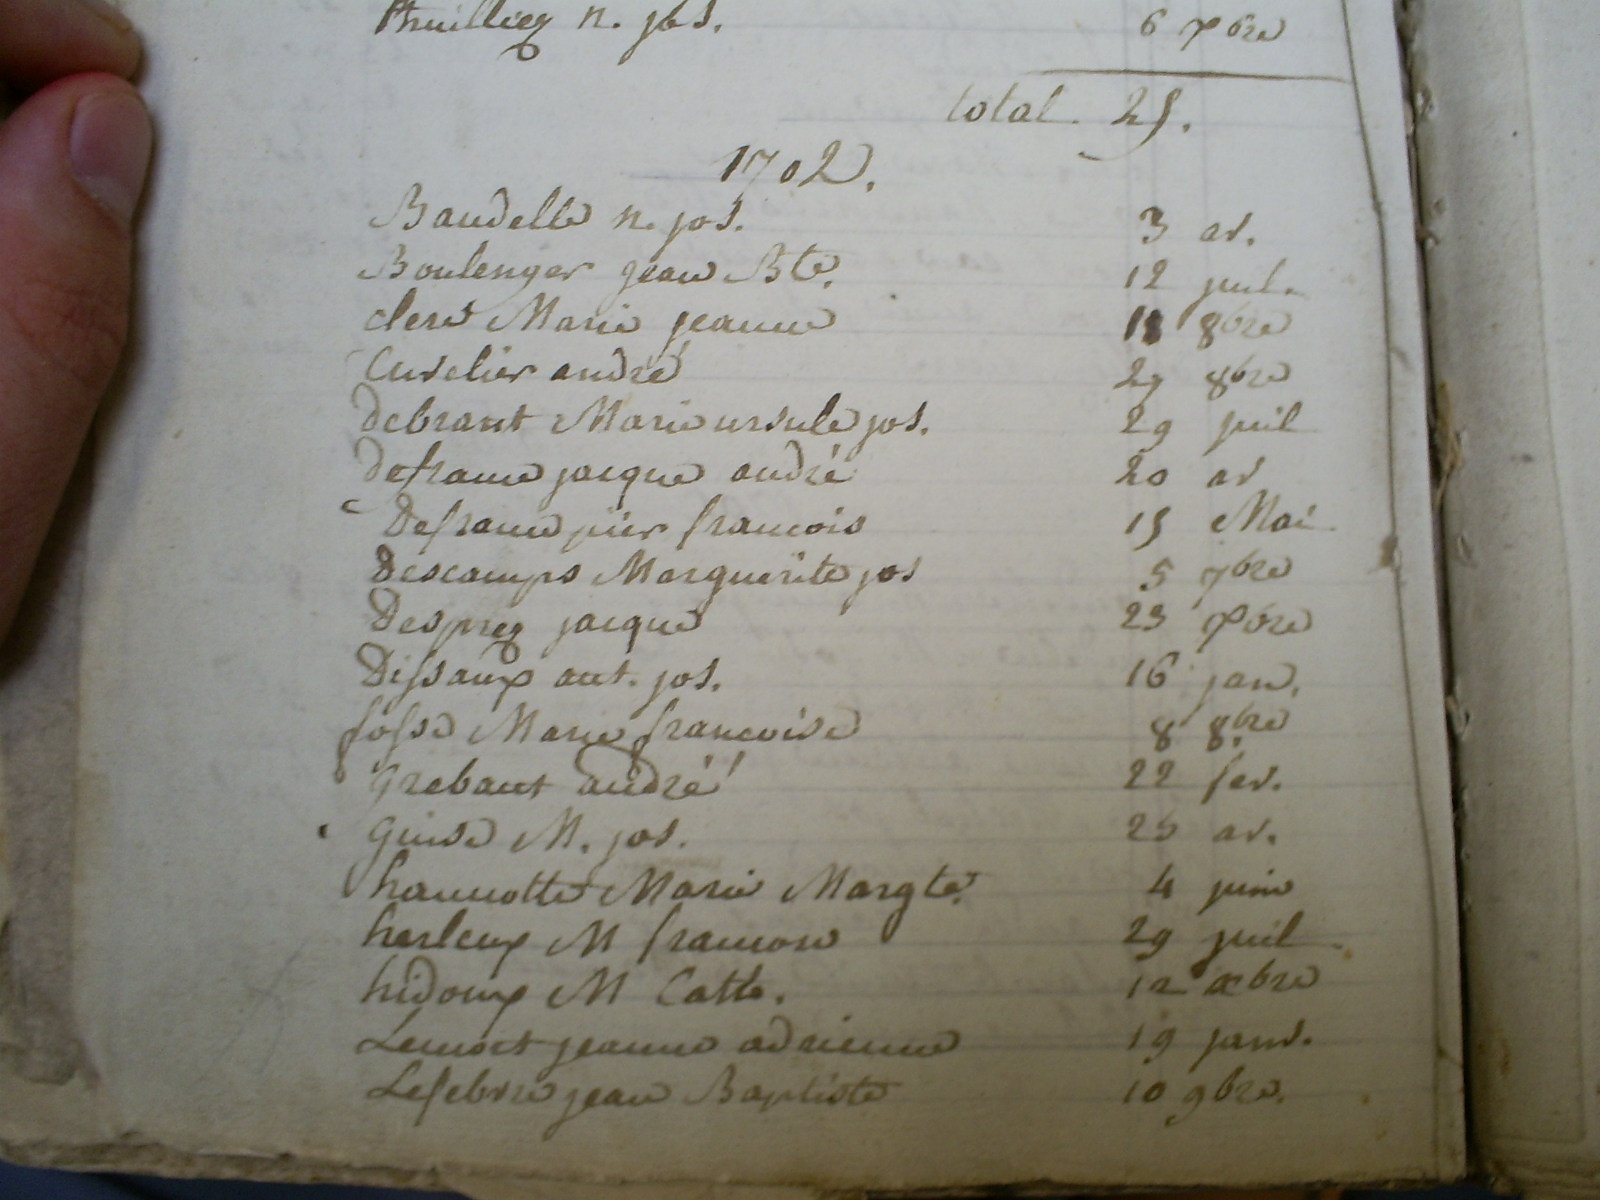 Thuilliez n. jos. 6 xbre
total. 25.
1702.
Baudelle n. jos. 3 av.
Boulenger jean Bte. 12 juil.
clere Marie jeanne 18 8bre
Cuvelier andré 29 8bre
debrant Marie ursule jos. 29 juil
defrance jacque andré 20 av
Defrance pier francois 15 Mai
Descamps Marguerite jos 5 7bre
Desprez jacque 23 xbre
Dissaux ant. jos. 16 jan.
fosse Marie francoise 8 8bre
Grebant andré 22 fev.
Guise M. jos. 25 av.
hannotte Marie Margte. 4 juin
herleux M francoise 29 juil
hidoux M Cathe. 12 xbre
jeanne adrienne 19 janv.
Lefebvre jean Baptiste 10 9bre.